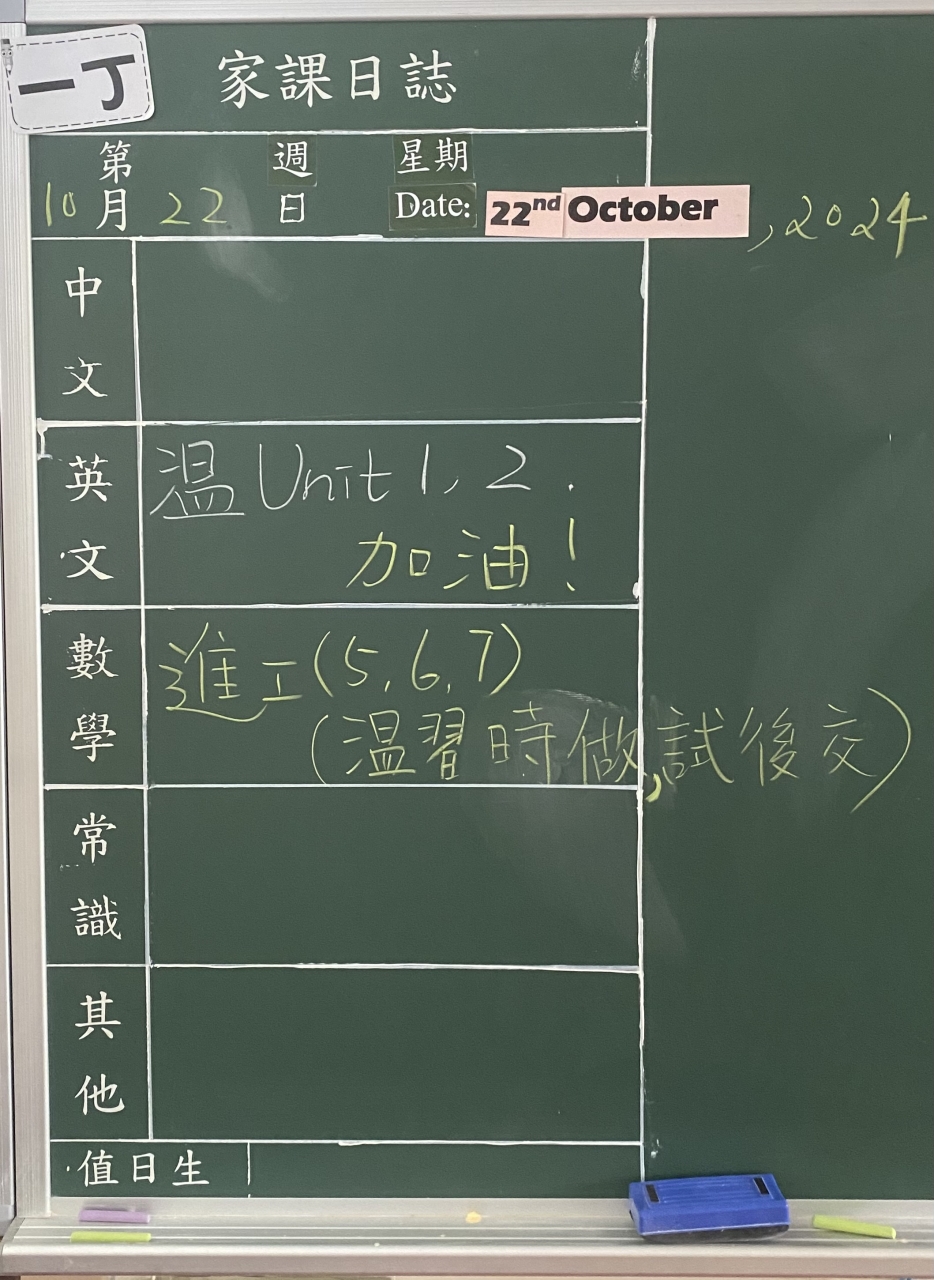 一丁
家課日誌
第 週 星期
10月22日 Date: 22nd October, 2024
中文
英文 温Unit 1, 2.
加油!
數學 進工(5,6,7)
(温習時做,試後交)
常識
其他
值日生